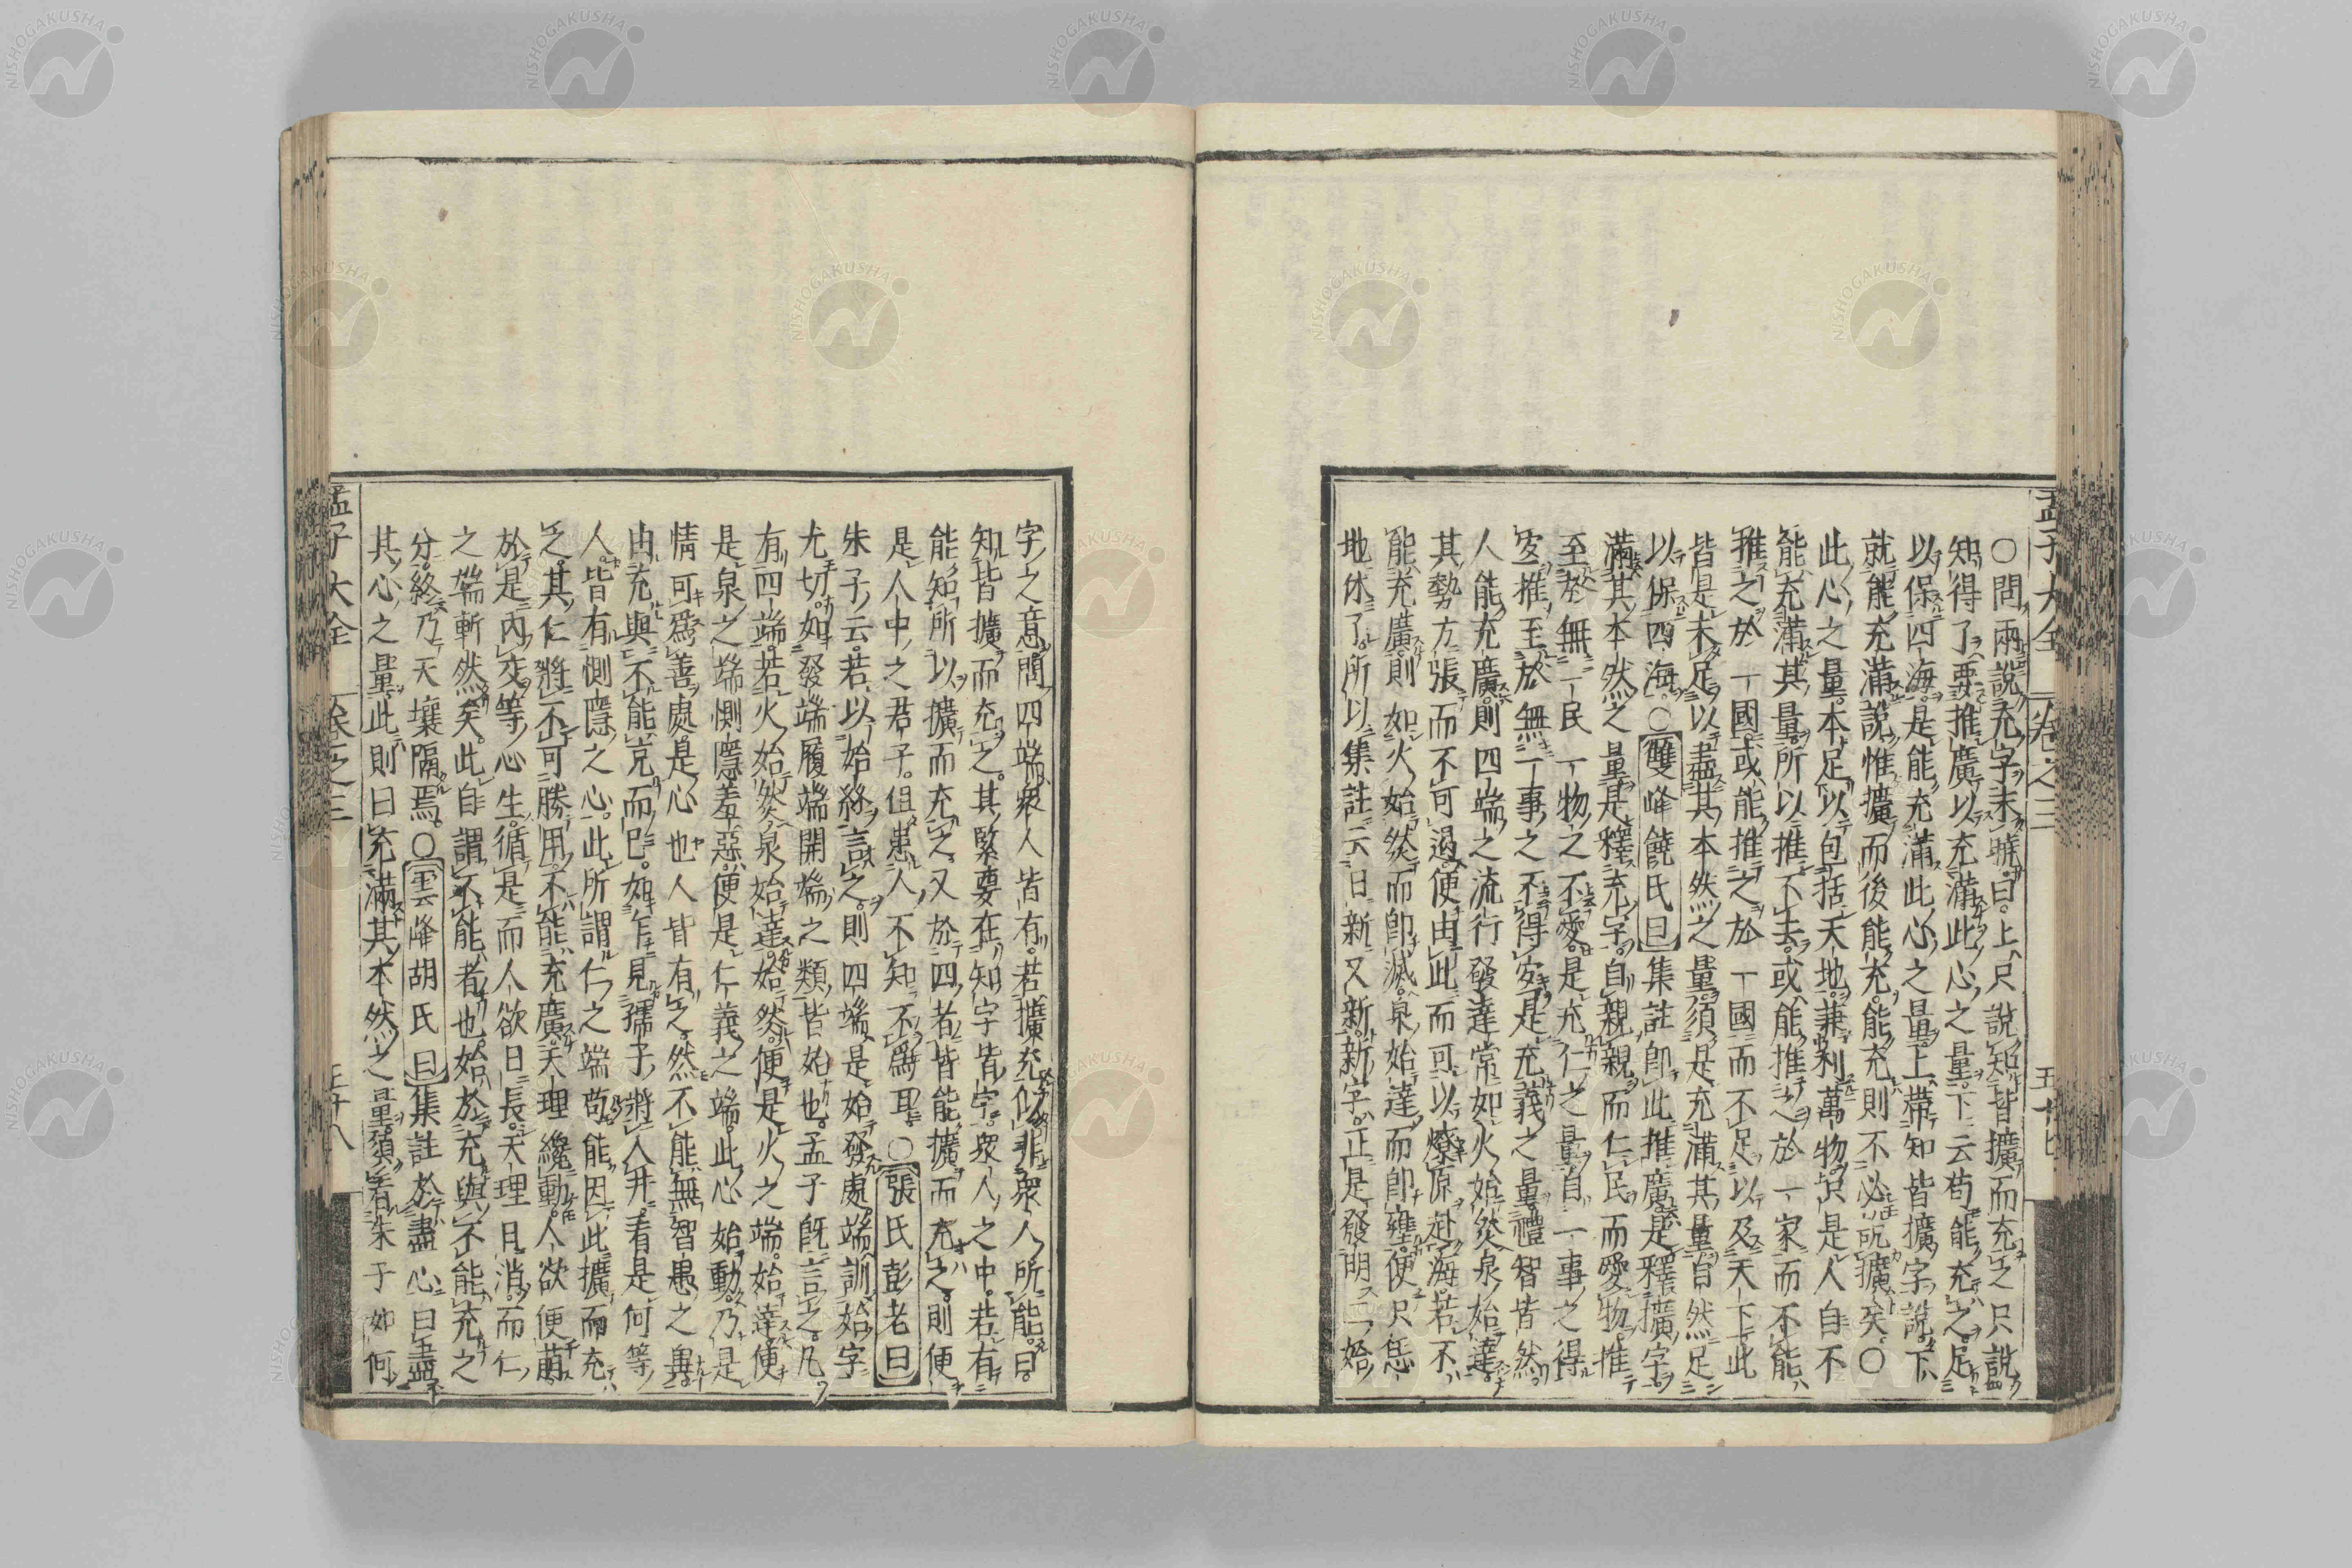 孟子大全 卷之三 五十七
○問兩說充字未曉曰上只說知皆擴而充之只說
知得了要推廣以充滿此心之量下云苟能充之足
以保四海是能充滿此心之量上帶知皆擴字說下
就能充滿說惟擴而後能充能充則不必說擴矣○
此心之量本足以包括天地兼利萬物只是人自不
能充滿其量所以推不去或能推之於一家而不能
推之於一國或能推之於一國而不足以及天下此
皆是未足以盡其本然之量須是充滿其量自然足
以保四海○雙峰饒氏曰集註卽此推廣是釋擴字
滿其本然之量是釋充字自親親而仁民而愛物推
至於無一民一物之不愛是充仁之量自一事之得
宜推至於無一事之不得宜是充義之量禮智皆然
人能充廣則四端之流行發達常如火始然泉始達
其勢方張而不可遏便由此而可以燎原赴海若不
能充廣則如火始然而卽滅泉始達而卽壅便只恁
地休了所以集註云日新又新新字正是發明二始
字之意問四端衆人皆有若擴充似非衆人所能曰
知皆擴而充之其緊要在知字皆字衆人之中若有
能知所以擴而充之又於四者皆能擴而充之則便
是人中之君子但患人不知不爲耳○張氏彭老曰
朱子云若以始終言之則四端是始發處端訓始字
尤切如發端履端開端之類皆始也孟子旣言之凡
有四端若火始然泉始達始然便是火之端始達便
是泉之端惻隱羞惡便是仁義之端此心始動乃是
情可爲善處是心也人皆有之然不能無智愚之異
由充與不能充而已如乍見孺子將入井看是何等
人皆有惻隱之心此所謂仁之端苟能因此擴而充
之其仁將不可勝用不能充廣天理纔動人欲便萌
於是內交等心生循是而人欲日長天理日消而仁
之端斬然矣此自謂不能者也始於充與不能充之
分終乃天壤隔焉○雲峰胡氏曰集註於盡心曰盡
其心之量此則曰充滿其本然之量須看朱子如何
孟子大全 卷之三 五十八
NISHOGAKUSHA